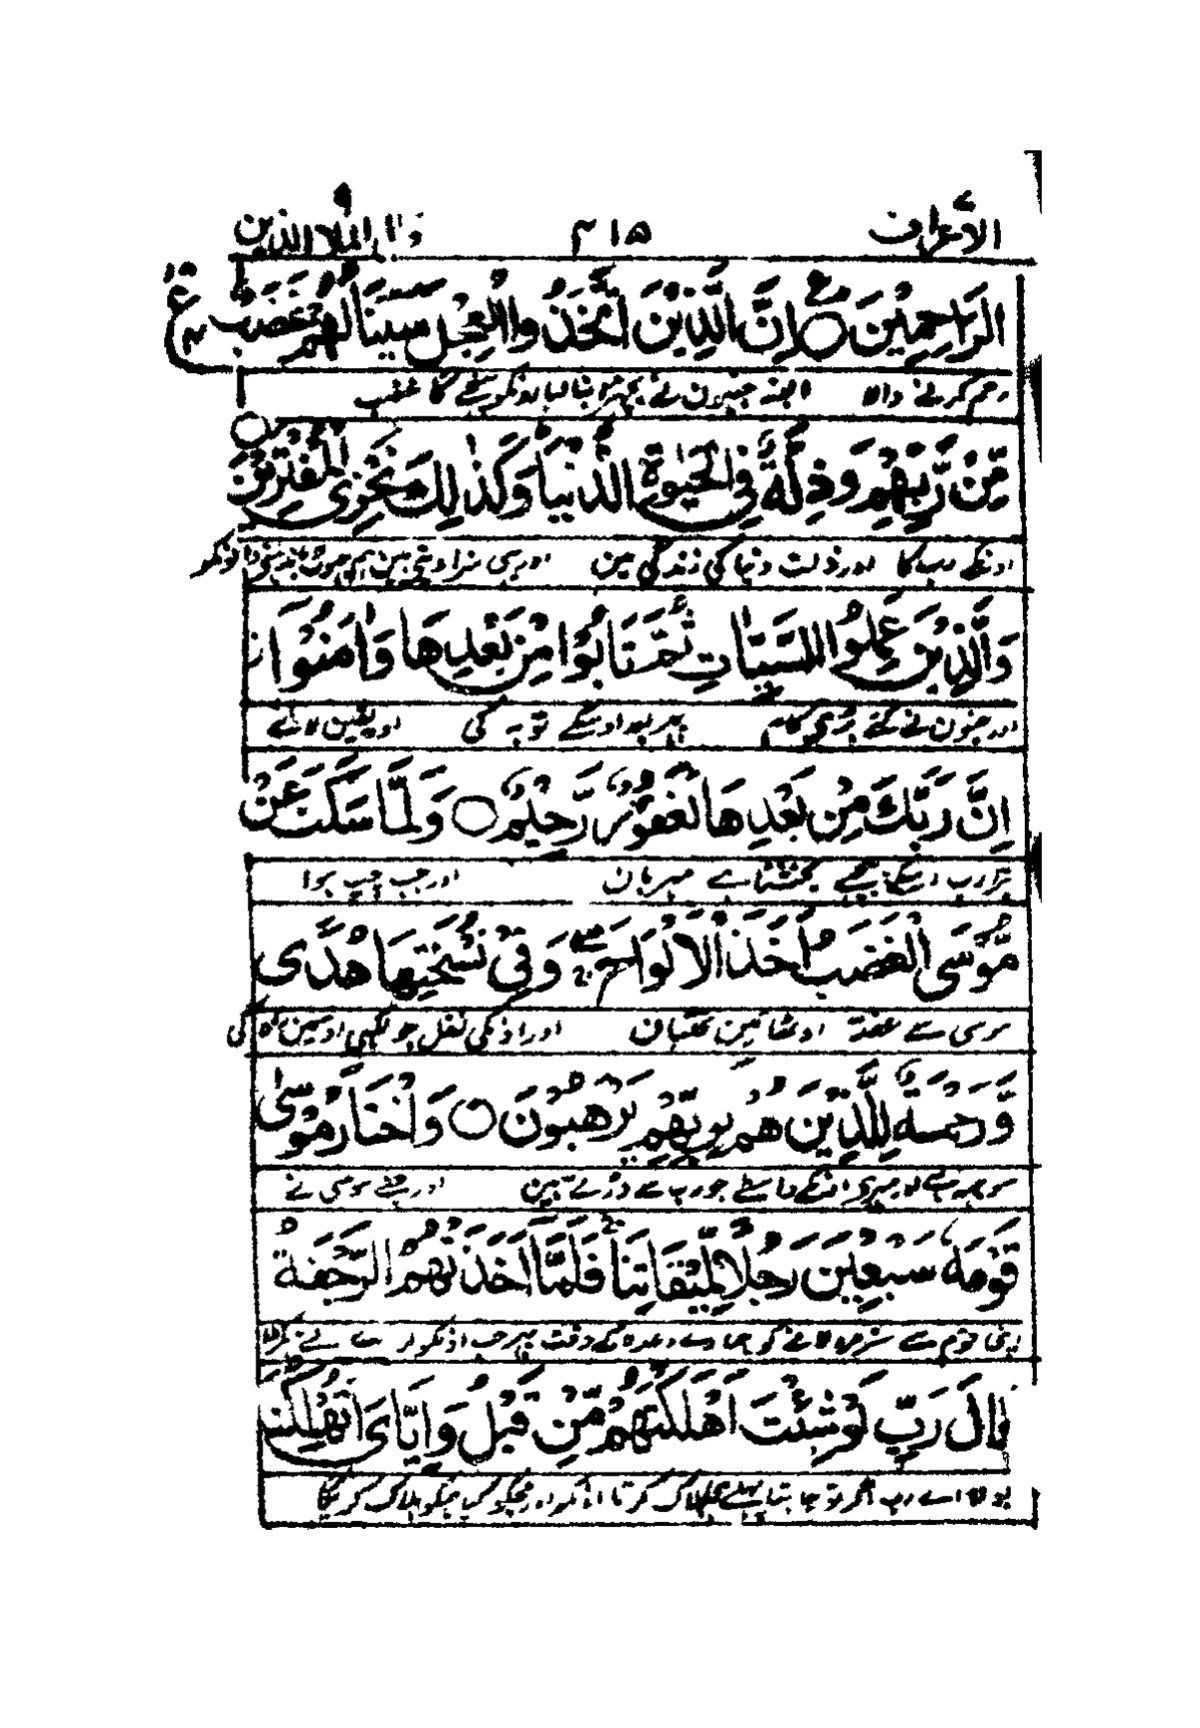 الاعراف ٧ ٣١٥ قال الملا الذين ٩
الرَّاحِمِيْنَ ○ اِنَّ الَّذِيْنَ اتَّخَذُوا الْعِجْلَ سَيَنَالُهُمْ غَضَبٌ
رحم کرنے والا البتہ جنہون نے بچھڑا بنا لیا اونکو پہنچے گا غضب
مِّنْ رَّبِّهِمْ وَذِلَّةٌ فِى الْحَيٰوةِ الدُّنْيَا وَكَذٰلِكَ نَجْزِى الْمُفْتَرِيْنَ ○
اونکے رب کا اور ذلت دنیا کی زندگی مین اور یہی سزا دیتے ہین ہم جھوٹ باندھنے والونکو
وَالَّذِيْنَ عَمِلُوا السَّيِّاٰتِ ثُمَّ تَابُوْا مِنْ بَعْدِهَا وَاٰمَنُوْا
اور جنہون نے کئے برے کام پھر بعد اوسکے توبہ کی اور یقین لائے
اِنَّ رَبَّكَ مِنْ بَعْدِهَا لَغَفُوْرٌ رَّحِيْمٌ ○ وَلَمَّا سَكَتَ عَنْ
تیرا رب اسکے پیچھے بخشتا ہے مہربان اور جب چپ ہوا
مُّوْسَى الْغَضَبُ اَخَذَ الْاَلْوَاحَ وَفِىْ نُسْخَتِهَا هُدًى
موسی سے غصہ اوٹھائین تختیان اور اونکی نقل جو لکھی اوسمین راہ کی
وَّرَحْمَةٌ لِّلَّذِيْنَ هُمْ لِرَبِّهِمْ يَرْهَبُوْنَ ○ وَاخْتَارَ مُوْسٰى
سوجھ ہے اور مہر اونکے واسطے جو رب سے ڈرتے ہین اور چنے موسی نے
قَوْمَهٗ سَبْعِيْنَ رَجُلًا لِّمِيْقَاتِنَا فَلَمَّا اَخَذَتْهُمُ الرَّجْفَةُ
اپنی قوم سے ستر مرد لانے کو ہمارے وعدہ کے وقت پھر جب اونکو لرزے نے پکڑا
قَالَ رَبِّ لَوْ شِئْتَ اَهْلَكْتَهُمْ مِّنْ قَبْلُ وَاِيَّاىَ اَتُهْلِكُنَا
بولا اے رب اگر تو چاہتا پہلے ہی ہلاک کرتا انکو اور مجکو کیا ہمکو ہلاک کریگا